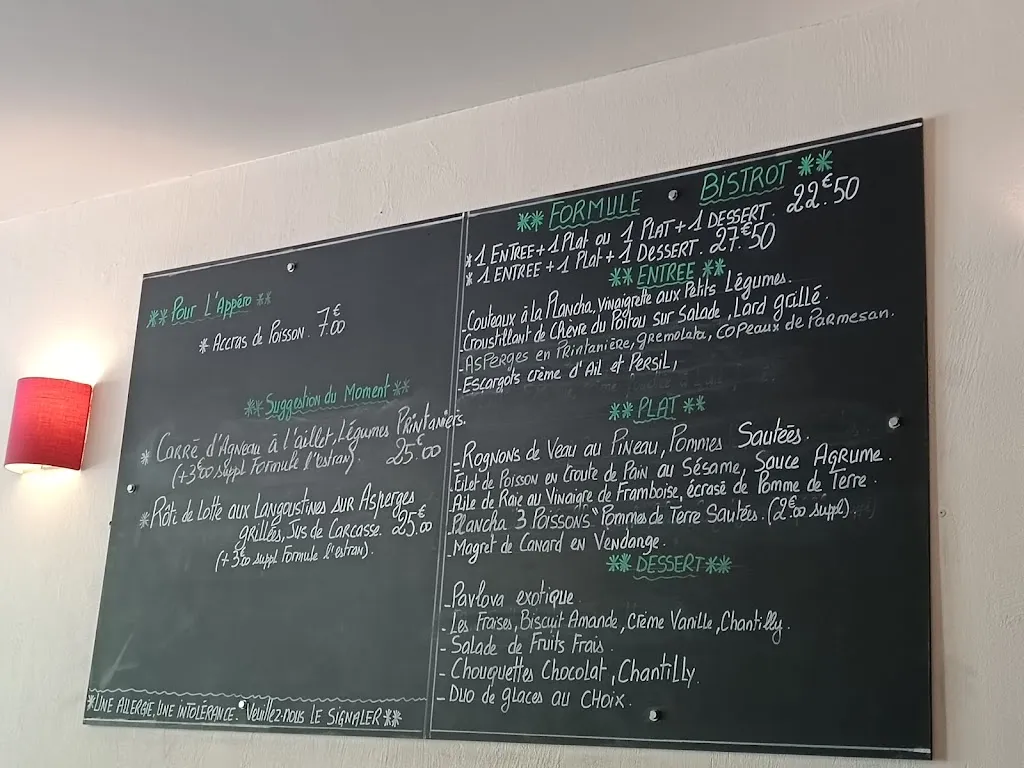 ** Pour L'Appéro **
* Accras de Poisson. 7€00
** Suggestion du Moment **
* Carré d'Agneau à l'aillet, Légumes Printaniers.
(+3€00 suppl Formule l'estran). 25€00
* Rôti de Lotte aux Langoustines sur Asperges
grillées, Jus de Carcasse. 25€00
(+3€00 suppl Formule l'estran).
*UNE ALLERGIE, UNE INTOLÉRANCE. Veuillez-nous LE SIGNALER**
** FORMULE BISTROT **
* 1 ENTREE + 1 Plat ou 1 PLAT + 1 DESSERT. 22€50
* 1 ENTREE + 1 Plat + 1 DESSERT. 27€50
** ENTREE **
- Couteaux à la Plancha, vinaigrette aux Petits Légumes.
- Croustillant de Chèvre du Poitou sur Salade, Lard grillé.
- Asperges en Printanière, gremolata, copeaux de Parmesan.
- Escargots crème d'Ail et Persil,
** PLAT **
- Rognons de Veau au Pineau, Pommes Sautées.
- Filet de Poisson en Croute de Pain au Sésame, Sauce Agrume.
- Aile de Raie au Vinaigre de Framboise, écrasé de Pomme de Terre.
- Plancha "3 Poissons" Pommes de Terre Sautées. (2€00 suppl).
- Magret de Canard en Vendange.
** DESSERT **
- Pavlova exotique
- Les Fraises, Biscuit Amande, Crème Vanille, Chantilly.
- Salade de Fruits Frais.
- Chouquettes Chocolat, Chantilly.
- Duo de glaces au choix.